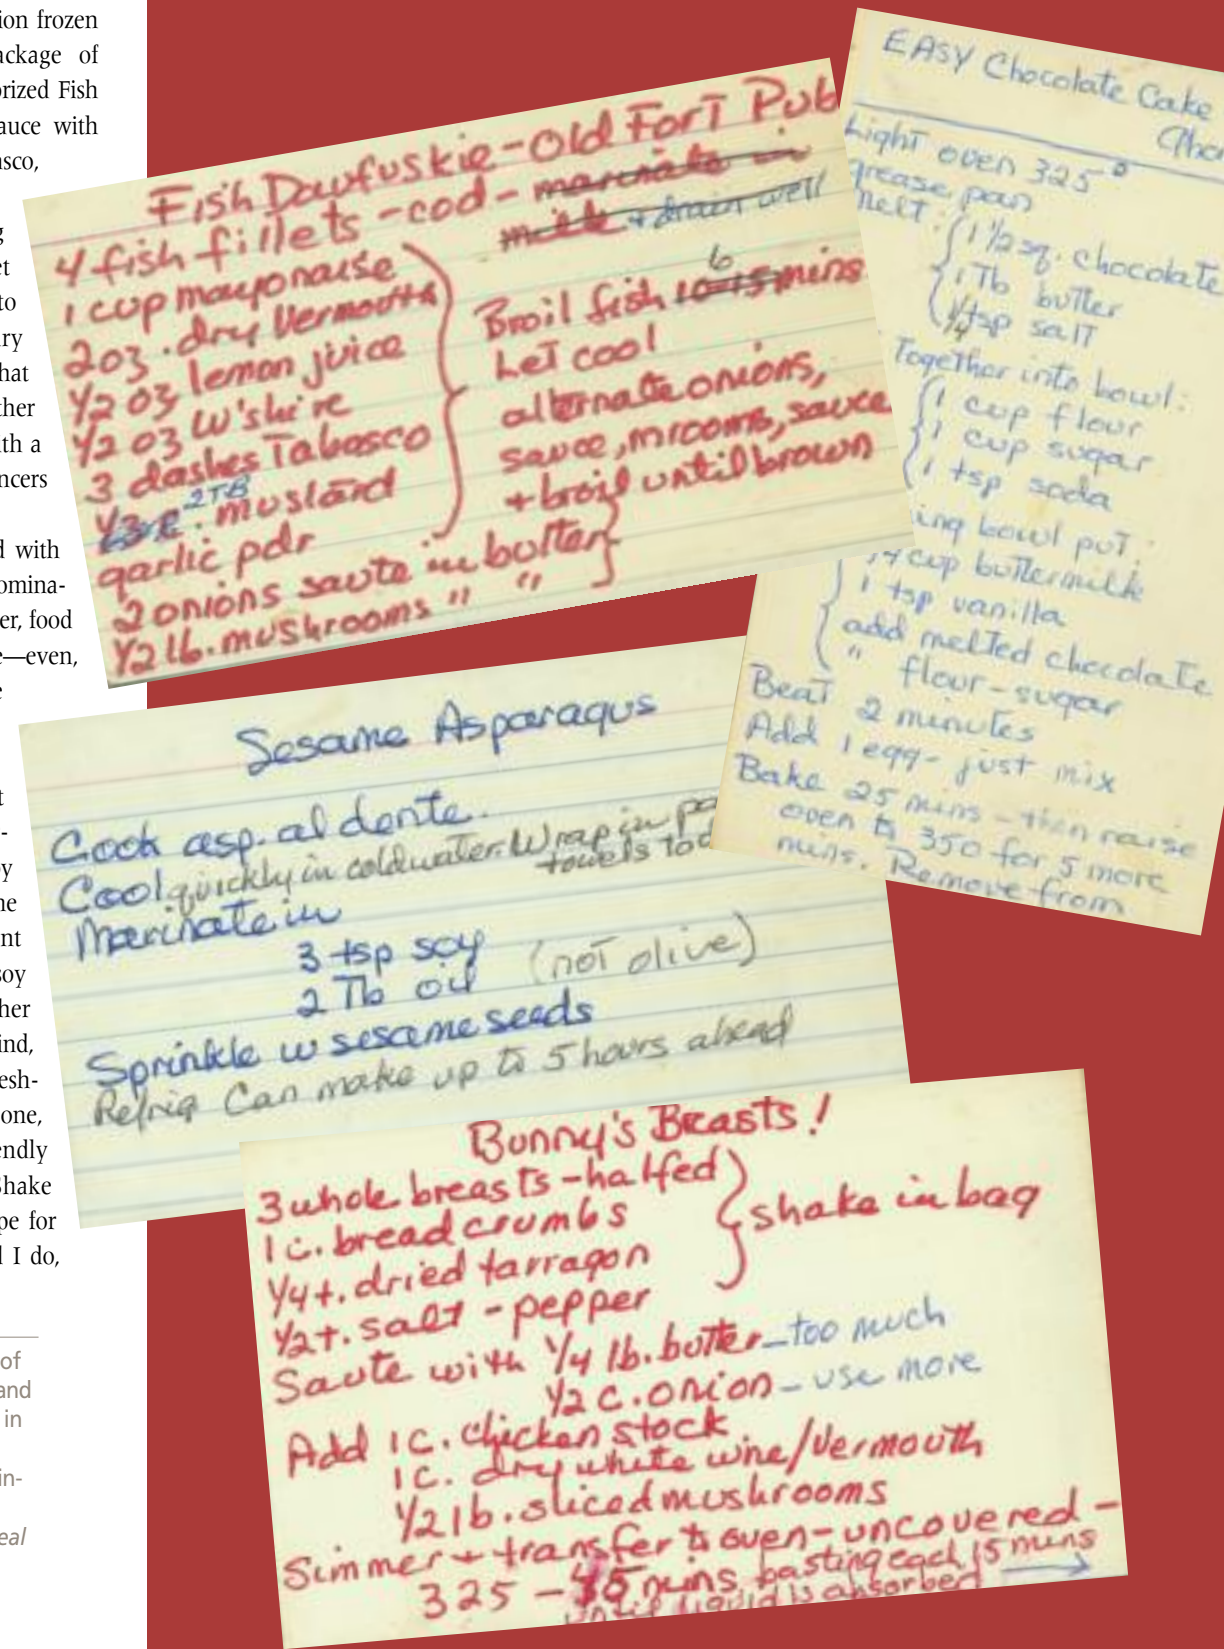 ion frozen
ackage of
rized Fish
auce with
asco,
g
et
to
ry
hat
ther
th a
ncers
d with
omina-
er, food
e—even,
e
t
-
by
ne
nt
soy
her
ind,
esh-
one,
endly
Shake
pe for
d I do,
of
and
in
in-
eal
Fish Dawfuskie - Old Fort Pub
4 fish fillets - cod - marinate in
milk + drain well
1 cup mayonaise
2 oz. dry Vermouth
1/2 oz lemon juice
1/2 oz w'shire
3 dashes Tabasco
1/3 c 2 TB. mustard
garlic pdr
2 onions saute in butter
1/2 lb. mushrooms " "
Broil fish 10-15 6 mins
Let cool
alternate onions,
sauce, mrooms, sauce
+ broil until brown
EASY Chocolate Cake
(Cho
Light oven 325°
grease pan
Melt: 1 1/2 sq. chocolate
1 Tb butter
1/4 tsp salt
Together into bowl:
1 cup flour
1 cup sugar
1 tsp soda
ing bowl put:
/4 cup buttermilk
1 tsp vanilla
add melted chocolate
" flour-sugar
Beat 2 minutes
Add 1 egg - just mix
Bake 25 mins - then raise
oven to 350 for 5 more
mins. Remove from
Sesame Asparagus
Cook asp. al dente.
Cool quickly in cold water. Wrap in pa
towels to d
Marinate in
3 tsp soy
2 Tb oil (not olive)
Sprinkle w sesame seeds
Refrig Can make up to 5 hours ahead
Bunny's Breasts!
3 whole breasts - halfed
1 c. bread crumbs
1/4 t. dried tarragon
1/2 t. salt - pepper
shake in bag
Saute with 1/4 lb. butter - too much
1/2 c. onion - use more
Add 1 c. chicken stock
1 c. dry white wine/Vermouth
1/2 lb. sliced mushrooms
Simmer + transfer to oven - uncovered -
325 - 45 mins, basting each 15 mins
until liquid is absorbed →